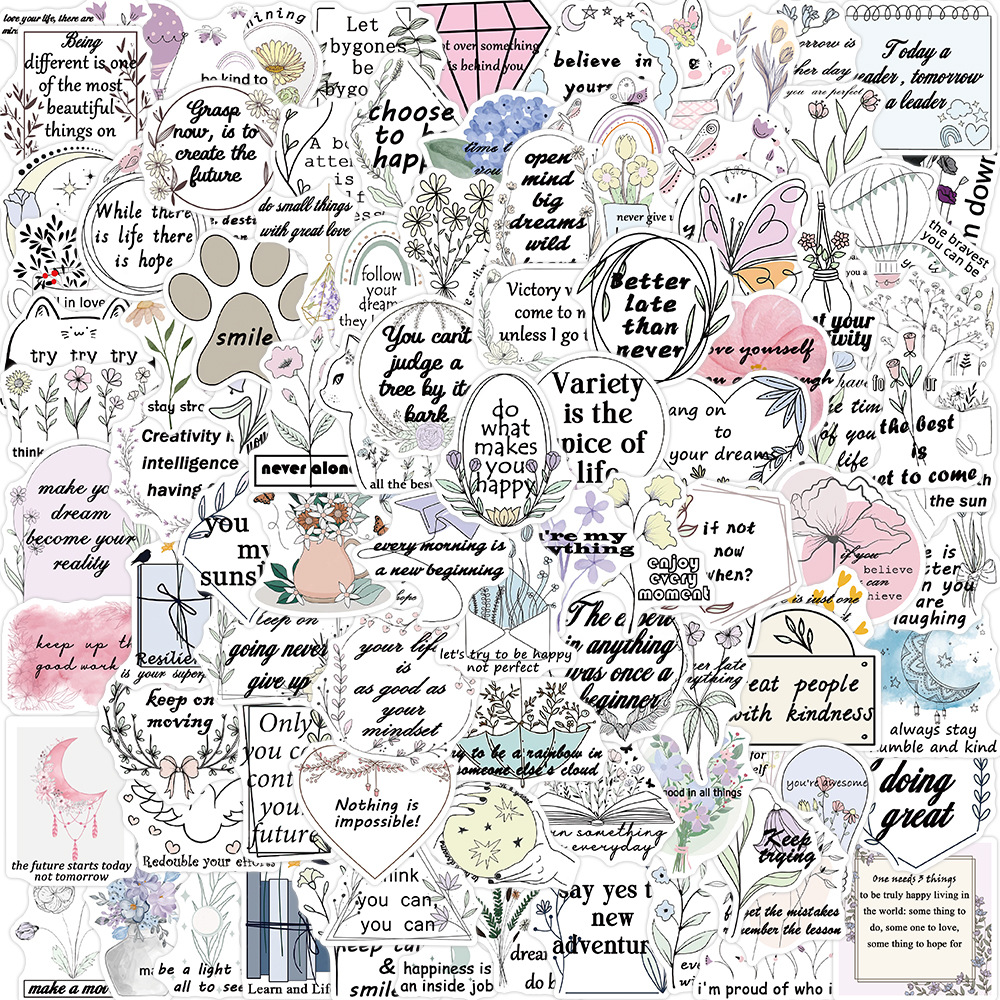 love your life, there are
Being
different is one
of the most
beautiful
things on
mining
be kind to
Let
bygones
be
bygo
t over something
is behind you
believe in
yours
orrow is
her day
you are perfect
Today a
reader, tomorrow
a leader
Grasp
now, is to
create the
future
choose
to b
happ
A bo
atte
is
time t
you
open
mind
big
dreams
wild
While there
is life there
is hope
desti
do small things
with great love
never give u
n down
the bravest
you can be
you a
follow
your
dream
they
l in love
try try try
smile
Victory w
come to n
unless I go t
Better
late
than
never
You can't
judge a
tree by its
bark
love yourself
ough
t your
tivity
Variety
is the
pice of
life
do
what
makes
you
happy
ang on
to
your dream
have
e tim
of you
life
the best
is
yet to come
the sun
stay stro
think
Creativity i
intelligence
having
never alone
all the bes
make yo
dream
become your
reality
you
my
suns
every morning is
a new beginning
hope
're my
ything
enjoy
every
moment
if not
now
when?
if you
believe
can
hieve
e is
tter
n you
are
laughing
e is just one
keep up th
good work
Resilie
is your super
keep on
going never
give up
your life
is
as good as
your
mindset
let's try to be happy
not perfect
The exper
in anything
was once a
beginner
ver late
rything
eat people
with kindness
always stay
umble and kind
keep on
moving
Only
you ca
cont
you
future
ry to be a rainbow in
someone else's cloud
ood in all things
elf
you're awesome
doing
great
the future starts today
not tomorrow
Redouble your efforts
Nothing is
impossible!
rn something
everyday
Keep
trying
One needs 3 things
to be truly happy living in
the world: some thing to
do, some one to love,
some thing to hope for
hink
you can,
you can
say yes t
new
adventur
et the mistakes
member the lesson
make a mov
be a light
all to see
Learn and Lif
keep cal
&
smile
happiness is
an inside job
drea
do b
eve
i'm proud of who i